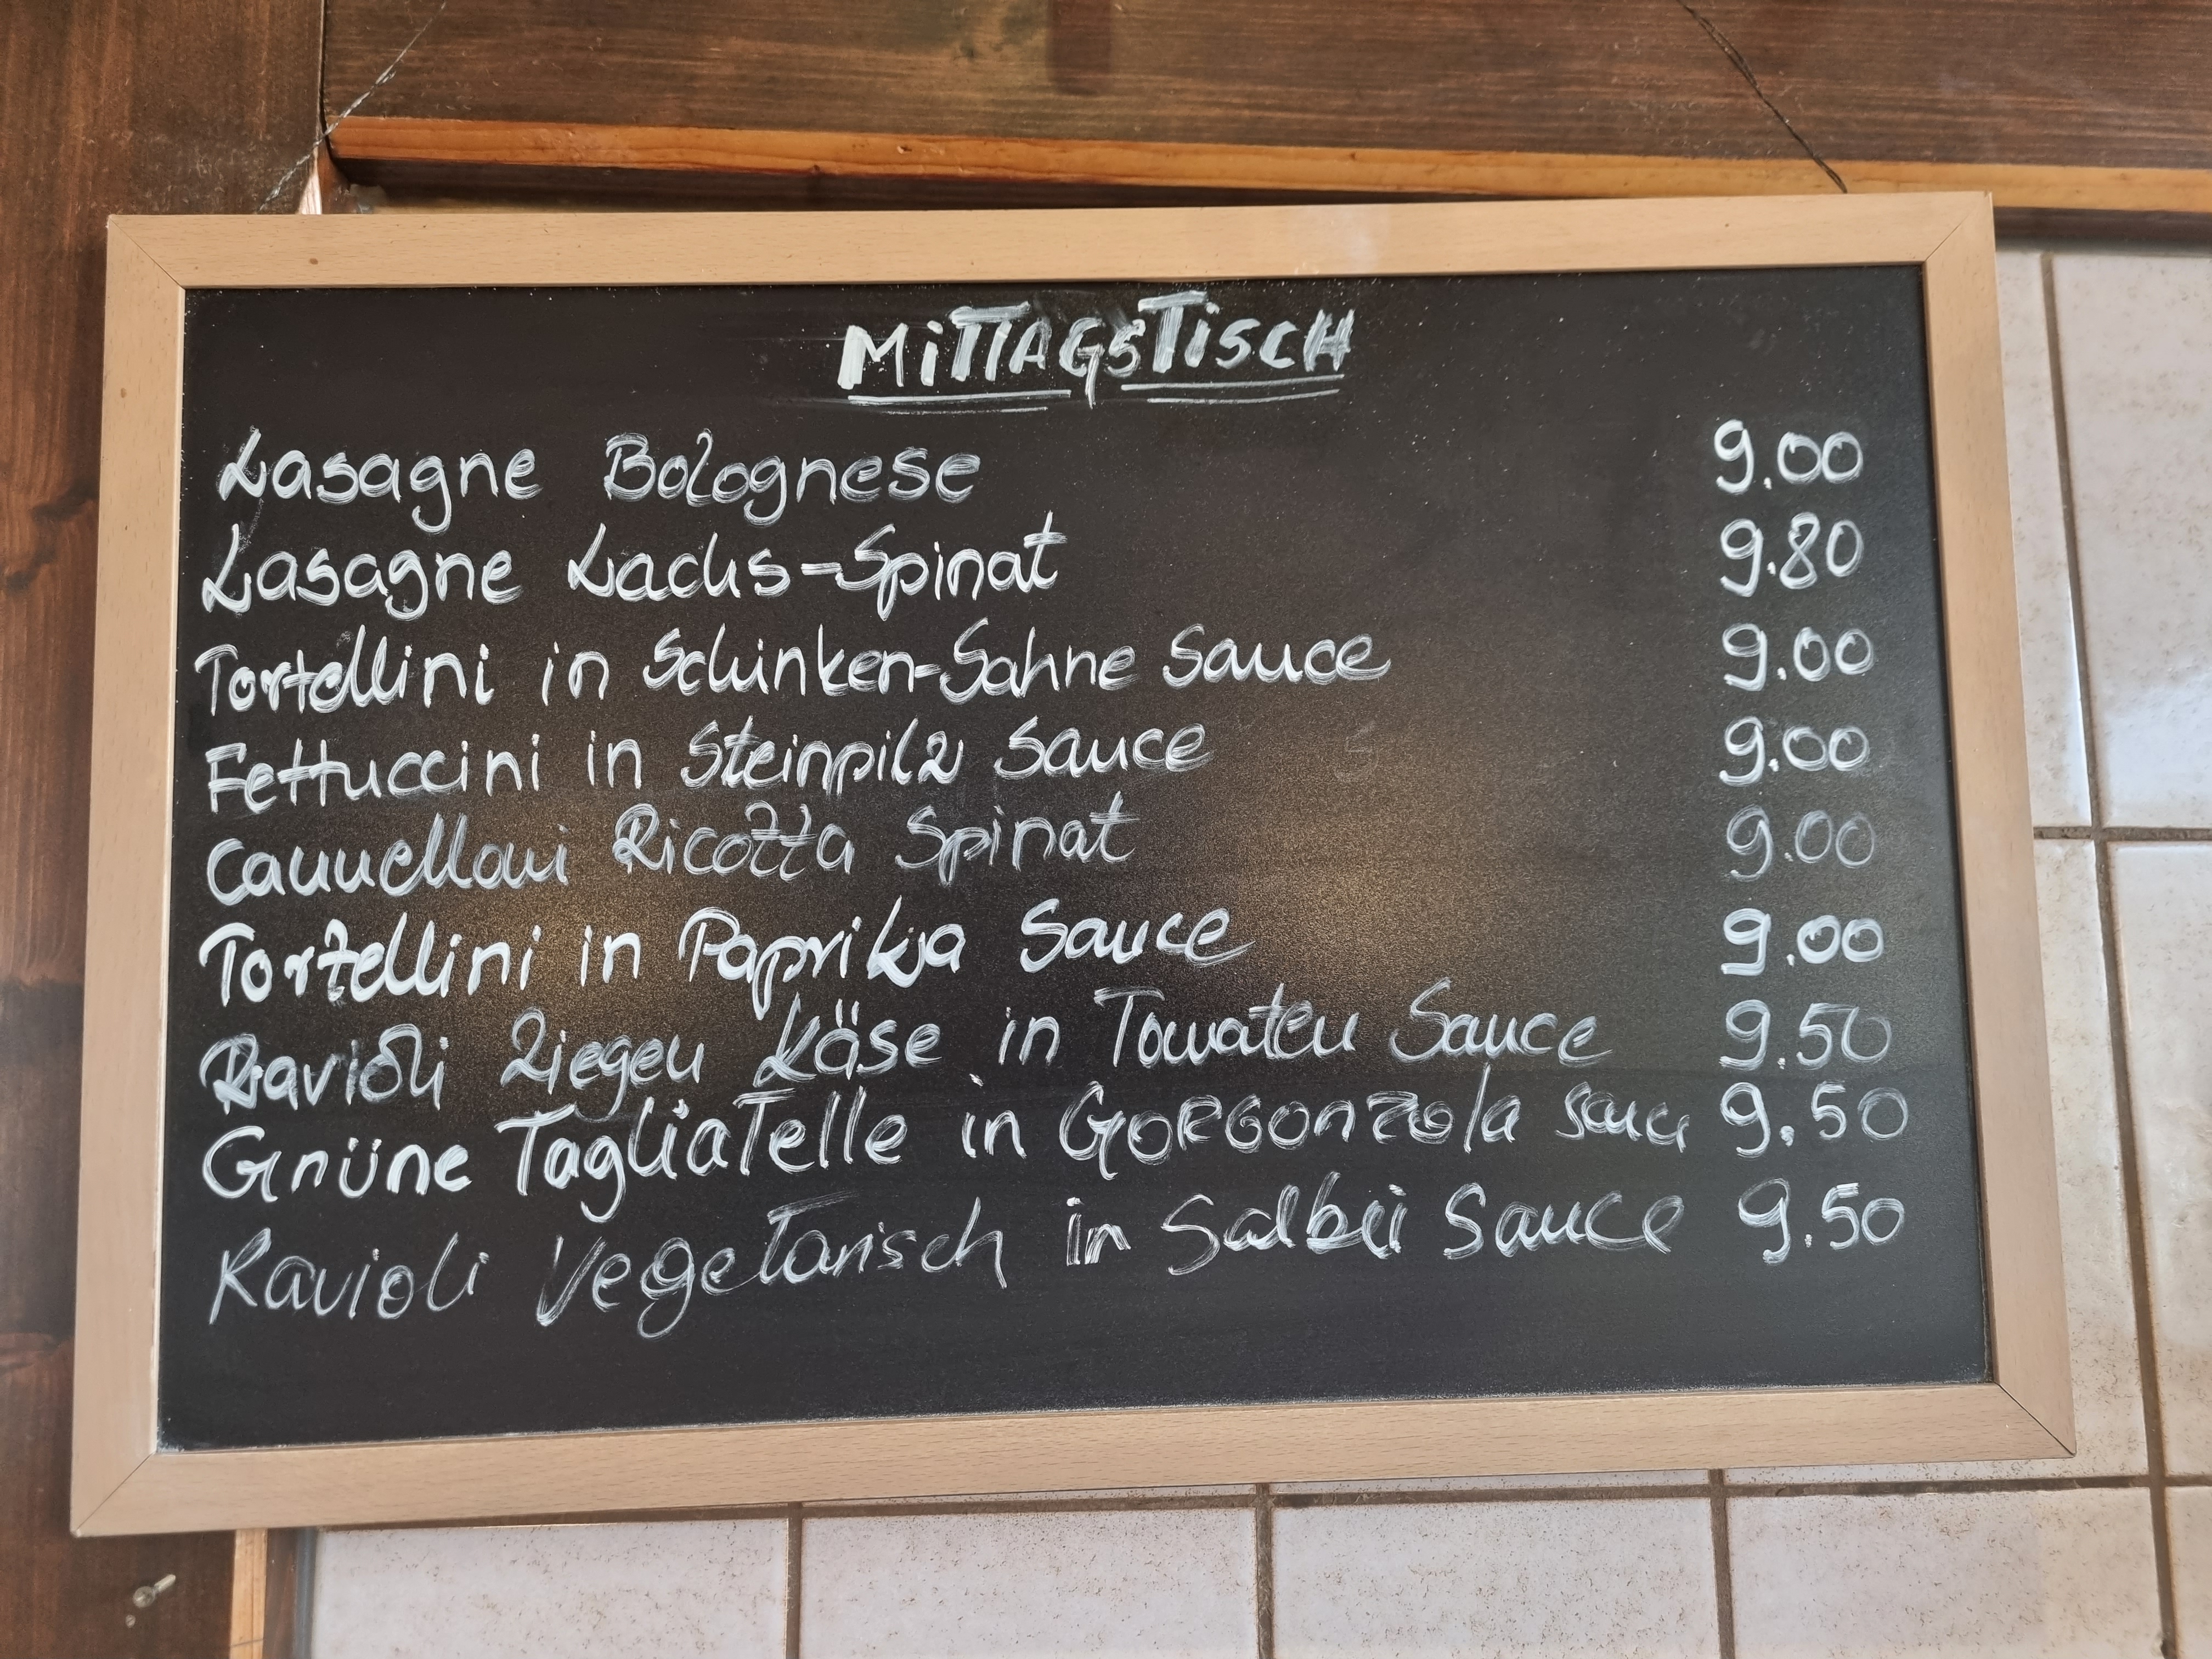 MiTTAGSTiSCH
Lasagne Bolognese 9.00
Lasagne Lachs-Spinat 9.80
Tortellini in Schinken-Sahne Sauce 9.00
Fettuccini in Steinpilz Sauce 9.00
Cannelloni Ricotta Spinat 9.00
Tortellini in Paprika Sauce 9.00
Ravioli Ziegen Käse in Tomaten Sauce 9.50
Grüne Tagliatelle in GORGONZOla Sauce 9.50
Ravioli Vegetarisch in Salbei Sauce 9.50